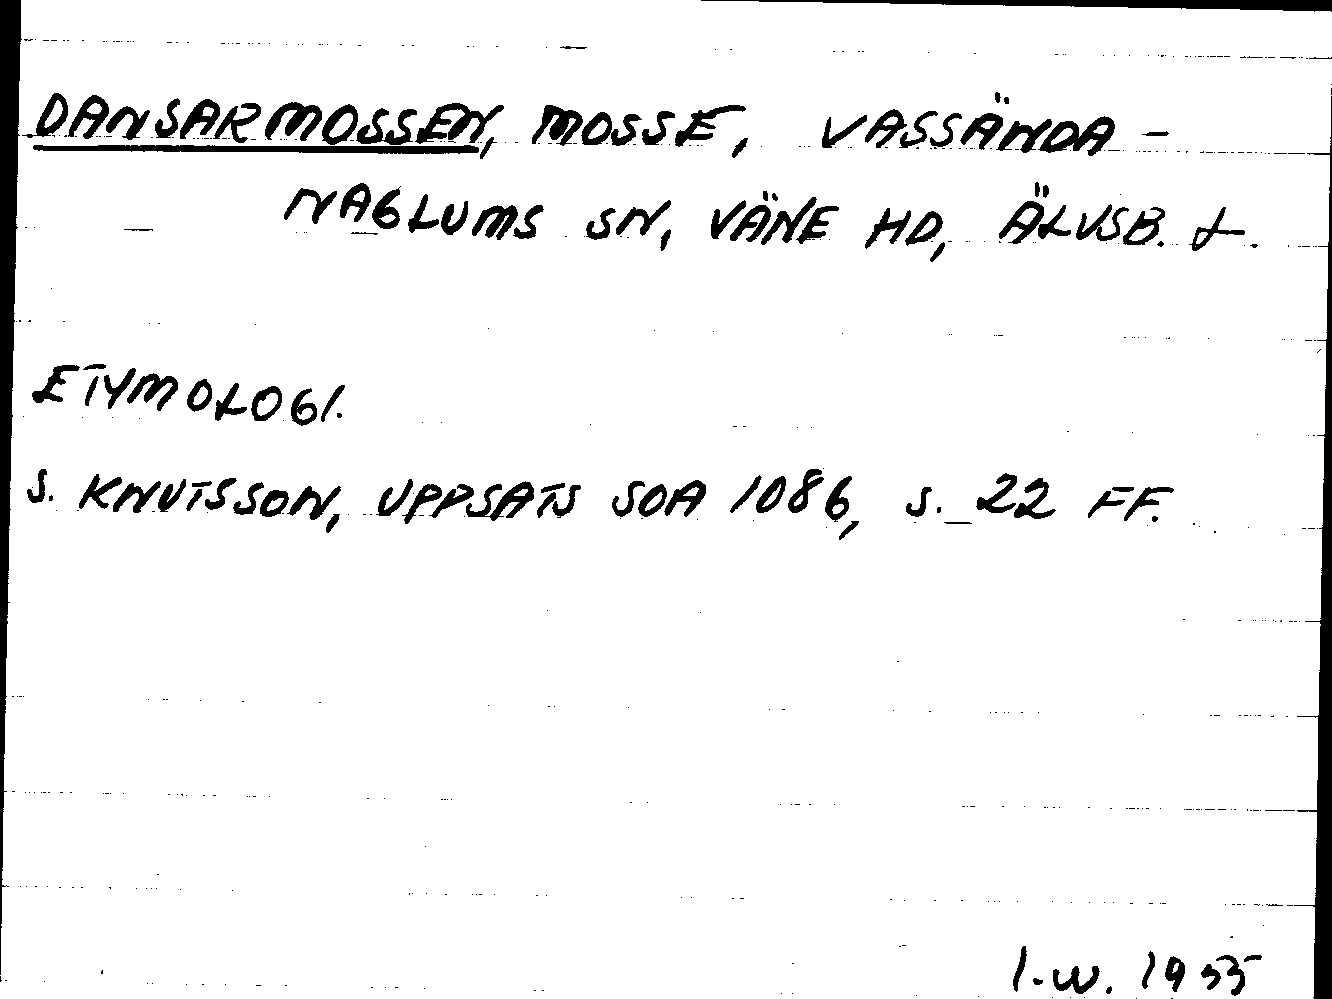 DANSARMOSSEN, MOSSE, VASSÄNDA -
NAGLUMS SN, VÄNE HD, ÄLVSB. L.
ETYMOLOGI.
S. KNUTSSON, UPPSATS SOA 1086, S. 22 FF.
I.W. 1955